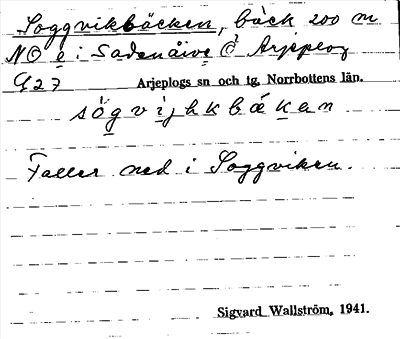 Soggvikbäcken, bäck 200 m
NO e i Sadenåive Ö Arjeplog
G27 Arjeplogs sn och tg. Norrbottens län.
sògvijhkbäken
Faller ned i Soggviken.
Sigvard Wallström, 1941.